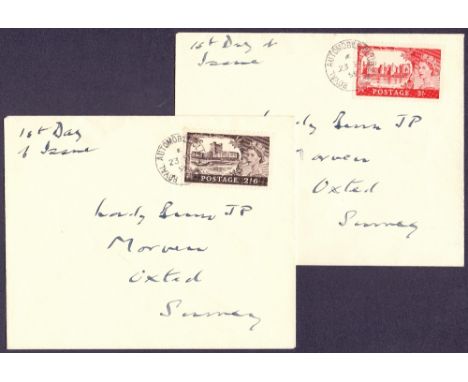 1st Day of
Issue
ROYAL AUTOMOBILE
23
55
POSTAGE 5/-
Lady Bunn JP
Morven
Oxted
Surrey
1st Day
of Issue
ROYAL AUTOMOB
23
POSTAGE 2/6
Lady Bunn JP
Morven
Oxted
Surrey